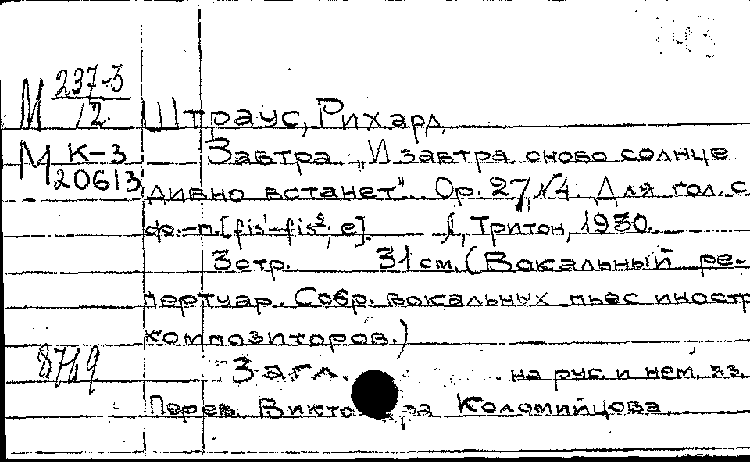 143
М 237-3/12 Штраус, Рихард
М К-3/20613 Завтра „И завтра снова солнце
дивно встанет". Ор. 27, №4. Для гол. с
ф.-п. [fis¹-fis²; e]. Л, Тритон, 1930.
3 стр. 31 см. (Вокальный ре-
пертуар. Собр. вокальных пьес иностр
композиторов.)
8719 Загл. на рус. и нем. яз.
Перев. Виктора Коломийцова